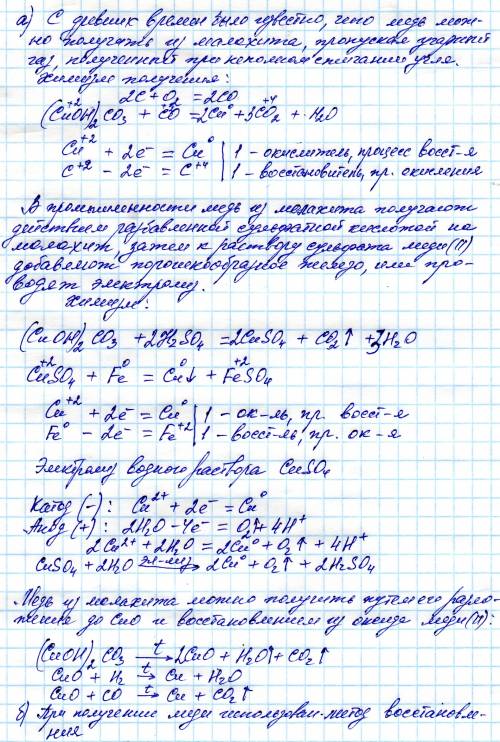 а) С древних времён было известно, что медь мож-
но получать из малахита, пропуская угарный
газ, полученный при неполном сжигании угля.
Химизм получения:
2C + O₂ = 2CO
(Cu⁺²OH)₂CO₃ + C⁺²O = 2Cu⁰ + 3C⁺⁴O₂ + H₂O
Cu⁺² + 2e⁻ = Cu⁰ | 1 - окислитель, процесс восст-я
C⁺² - 2e⁻ = C⁺⁴ | 1 - восстановитель, пр. окисления
В промышленности медь из малахита получают
действием разбавленной сульфатной кислотой на
малахит, затем к раствору сульфата меди (II)
добавляют порошкообразное железо, или про-
водят электролиз.
Химизм:
(CuOH)₂CO₃ + 2H₂SO₄ = 2CuSO₄ + CO₂↑ + 3H₂O
Cu⁺²SO₄ + Fe⁰ = Cu⁰↓ + Fe⁺²SO₄
Cu⁺² + 2e⁻ = Cu⁰ | 1 - ок-ль, пр. восст-я
Fe⁰ - 2e⁻ = Fe⁺² | 1 - восст-ль, пр. ок-я
Электролиз водного раствора CuSO₄
Катод (-): Cu²⁺ + 2e⁻ = Cu⁰
Анод (+): 2H₂O - 4e⁻ = O₂↑ + 4H⁺
2Cu²⁺ + 2H₂O = 2Cu⁰ + O₂↑ + 4H⁺
CuSO₄ + 2H₂O эл-лиз→ 2Cu⁰ + O₂↑ + 2H₂SO₄
Медь из малахита можно получить путём его разло-
жение до CuO и восстановлением из оксида меди (II):
(CuOH)₂CO₃ t→ 2CuO + H₂O↑ + CO₂↑
CuO + H₂ t→ Cu + H₂O
CuO + CO t→ Cu + CO₂↑
б) При получении меди использован метод восстановле-
ния